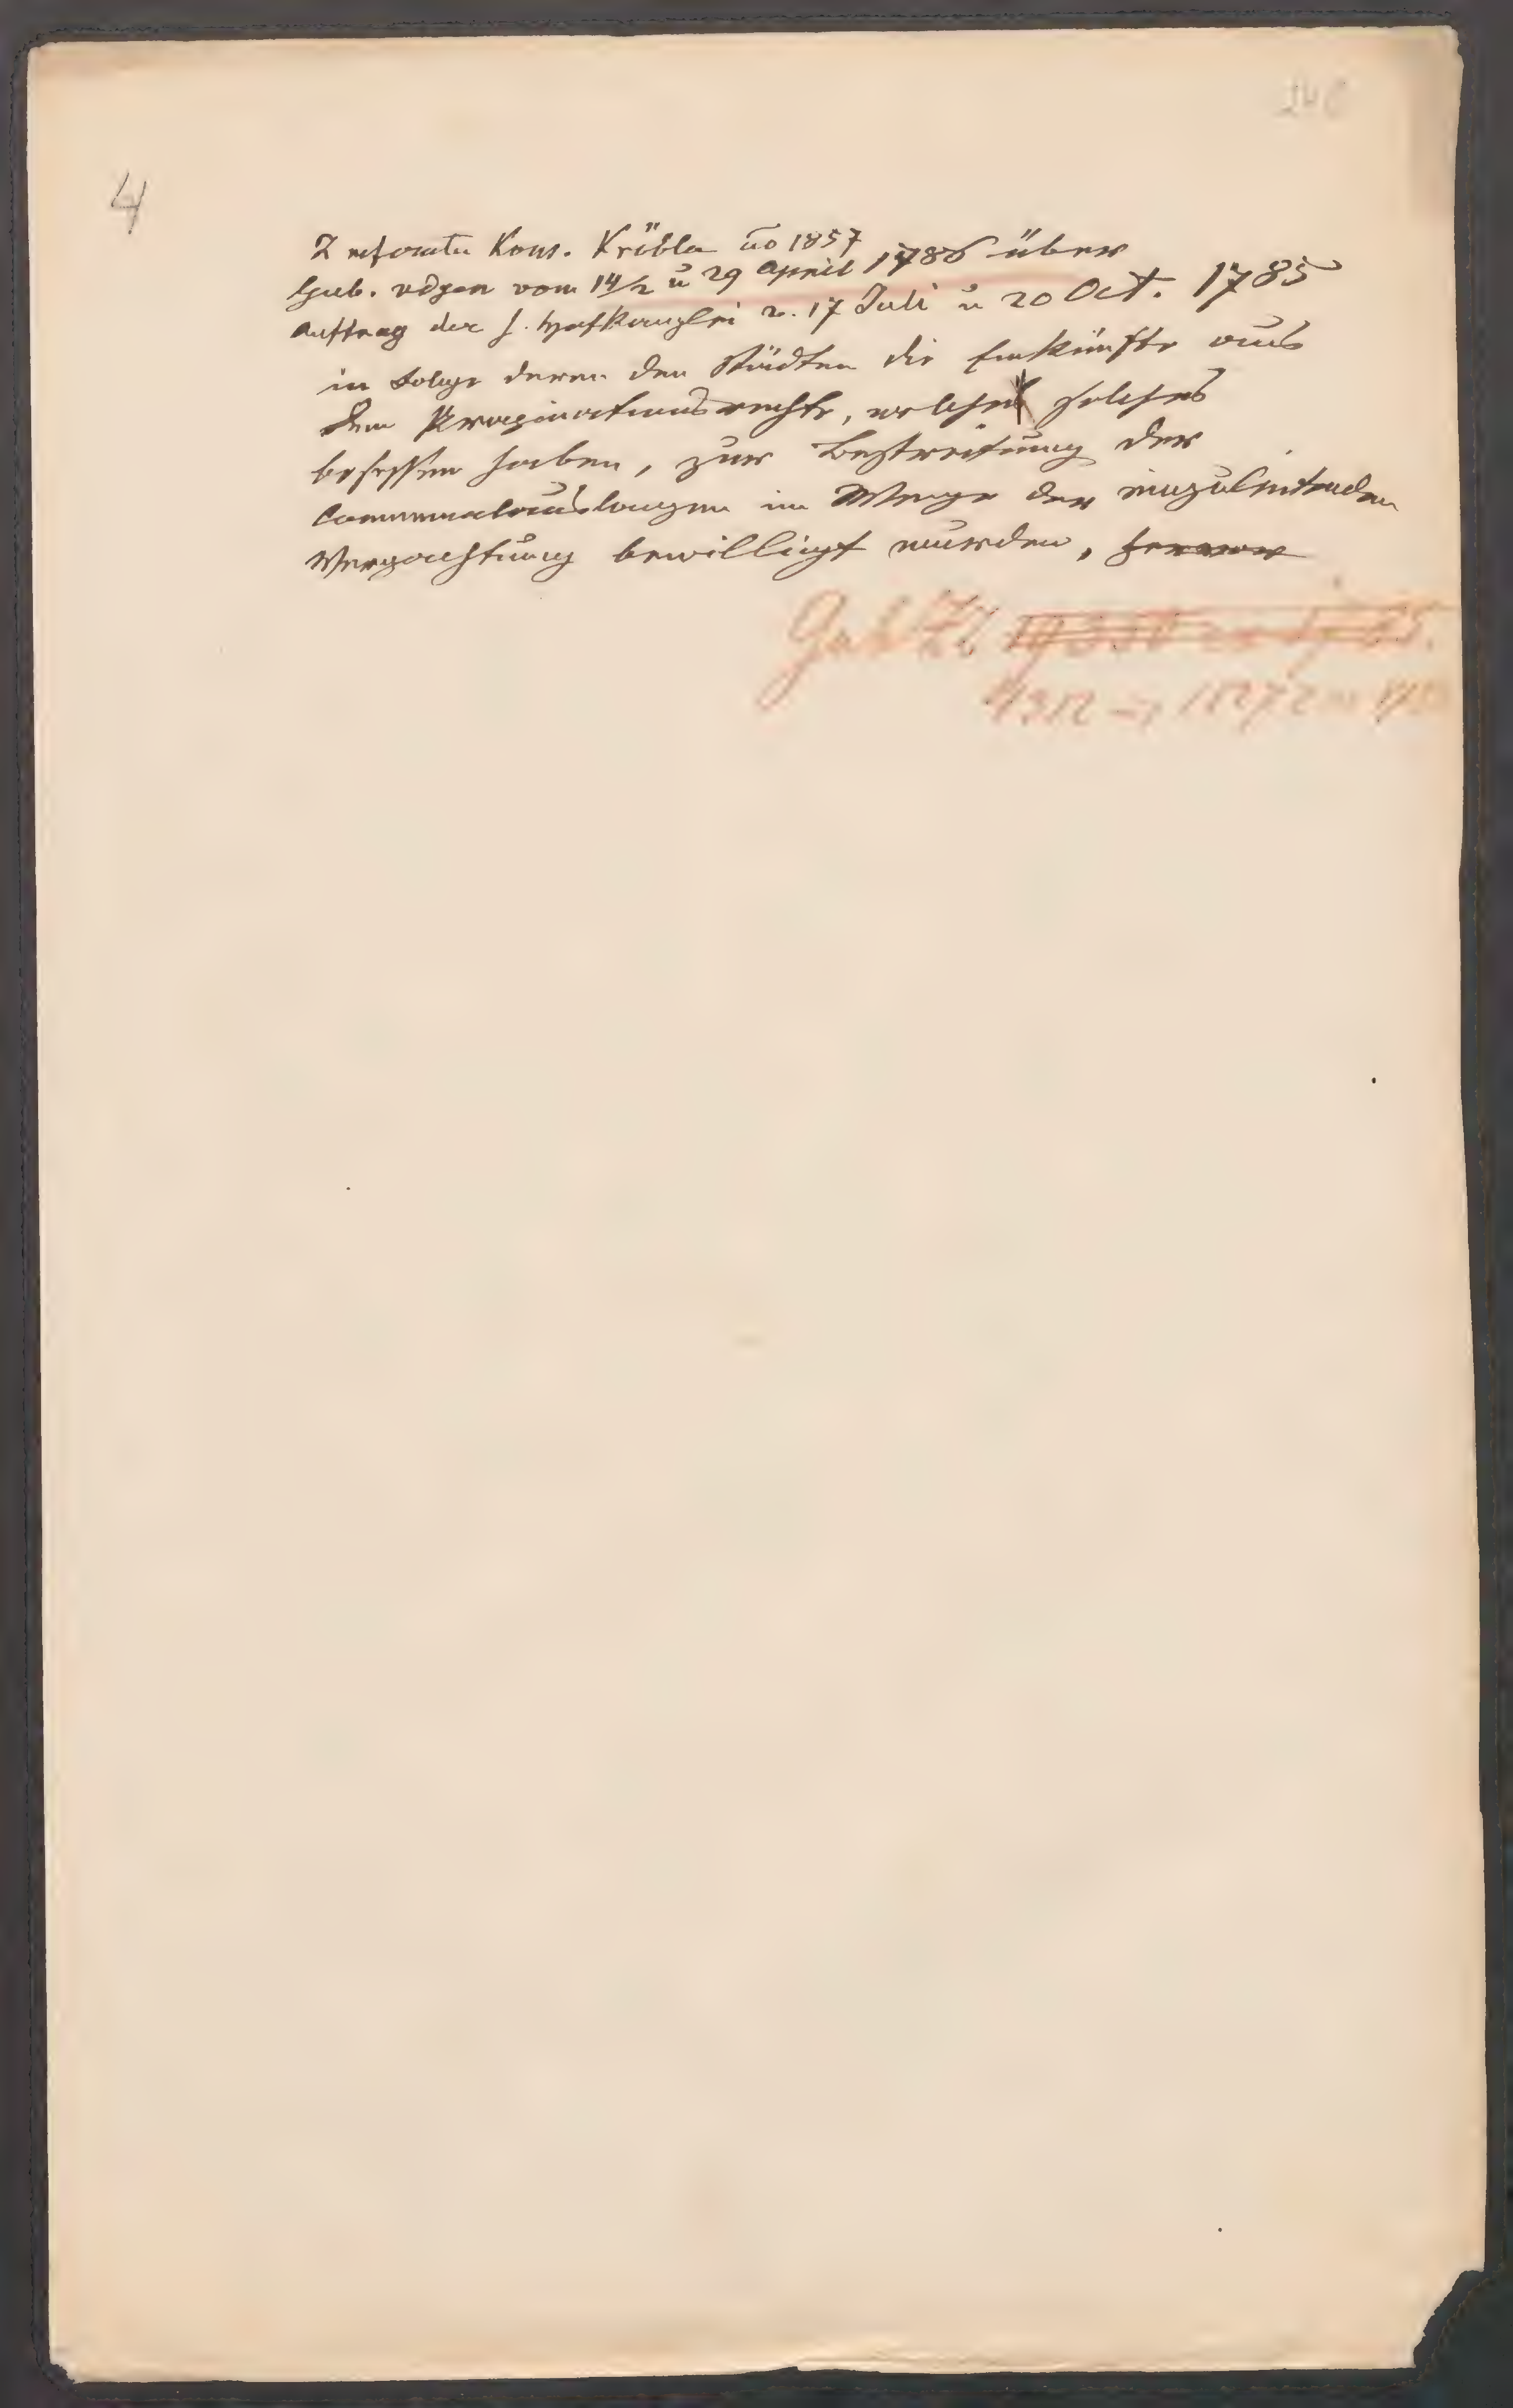 4
Z referatu Kons. Kröbla ao 1857
Gub. vdgen vom 14/2 u 29 April 1786 über
Auftrag der h. Hofkanzlei v. 17 Juli u 20 Oct. 1785
in Folge deren den Städten die Einkünfte aus
dem Propinationsrechte, welche solches
besessen haben, zur Bestreitung der
Communalauslagen im Wege der einzuleitenden
Verpachtung bewilligt wurden, ferner
Gub Zl